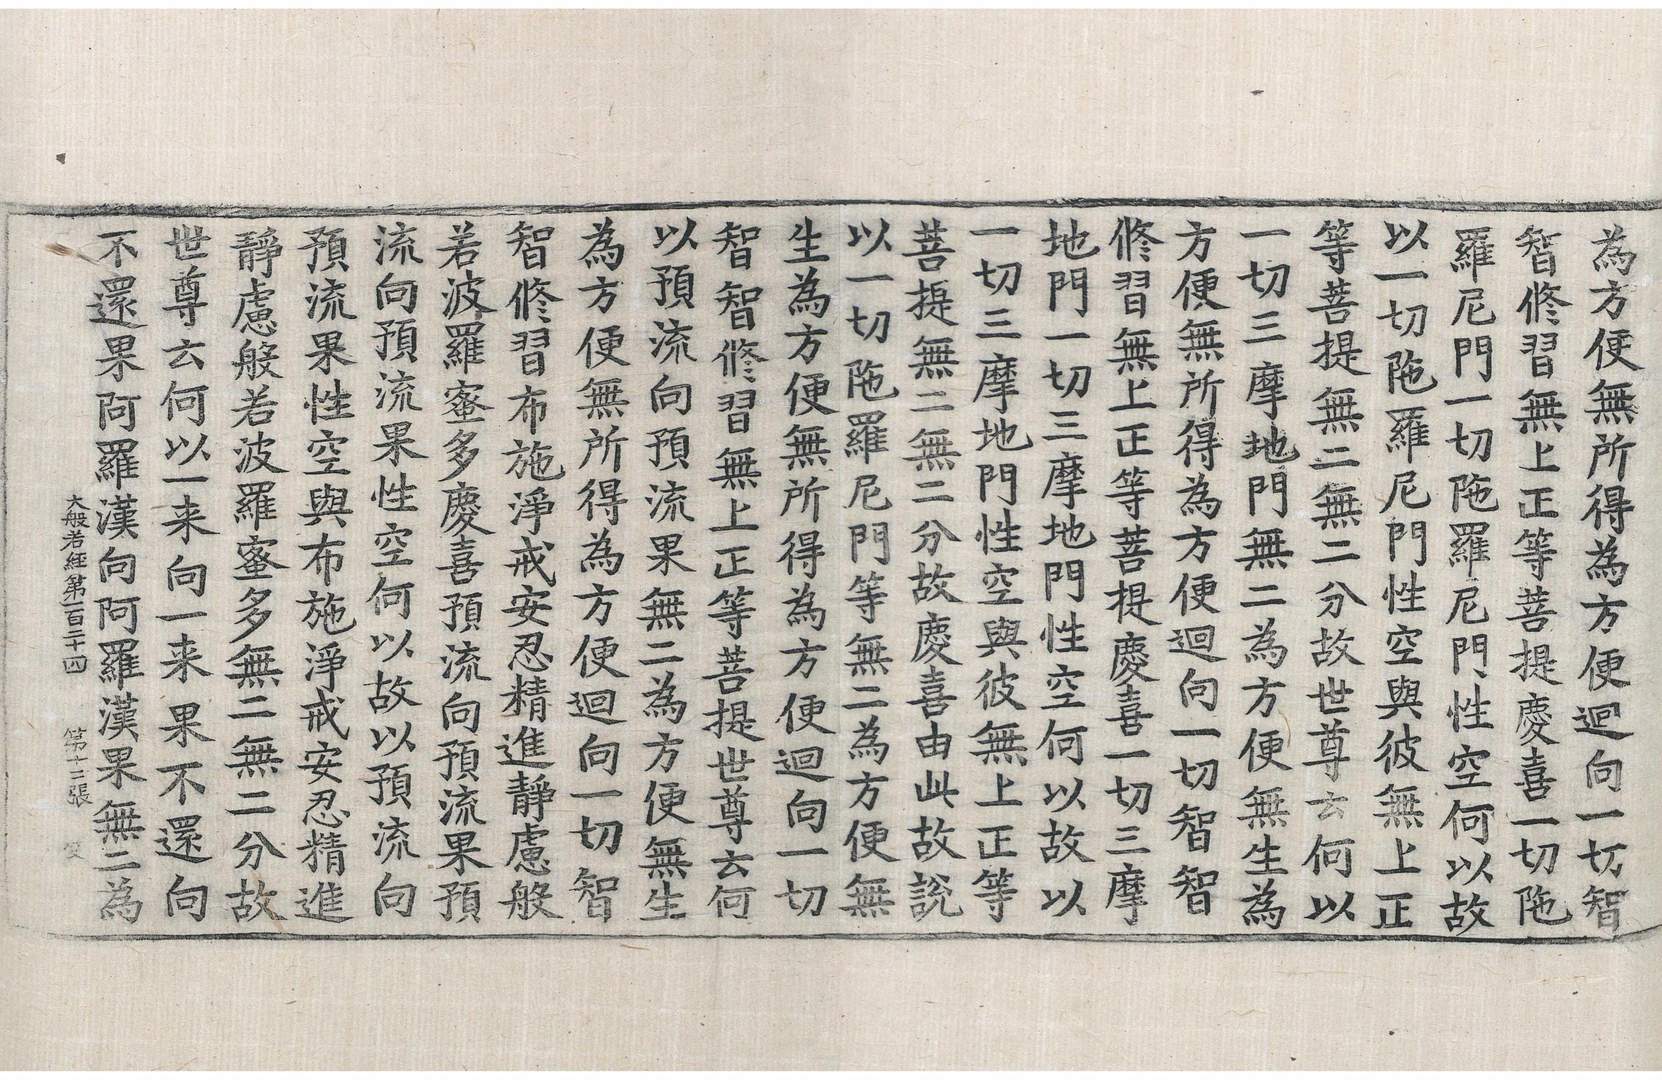 為方便無所得為方便迴向一切智
智修習無上正等菩提慶喜一切陁
羅尼門一切陁羅尼門性空何以故
以一切陁羅尼門性空與彼無上正
等菩提無二無二分故世尊云何以
一切三摩地門無二為方便無生為
方便無所得為方便迴向一切智智
修習無上正等菩提慶喜一切三摩
地門一切三摩地門性空何以故以
一切三摩地門性空與彼無上正等
菩提無二無二分故慶喜由此故說
以一切陁羅尼門等無二為方便無
生為方便無所得為方便迴向一切
智智修習無上正等菩提世尊云何
以預流向預流果無二為方便無生
為方便無所得為方便迴向一切智
智修習布施淨戒安忍精進靜慮般
若波羅蜜多慶喜預流向預流果預
流向預流果性空何以故以預流向
預流果性空與布施淨戒安忍精進
靜慮般若波羅蜜多無二無二分故
世尊云何以一来向一来果不還向
不還果阿羅漢向阿羅漢果無二為
大般若經第一百二十四 第十二張